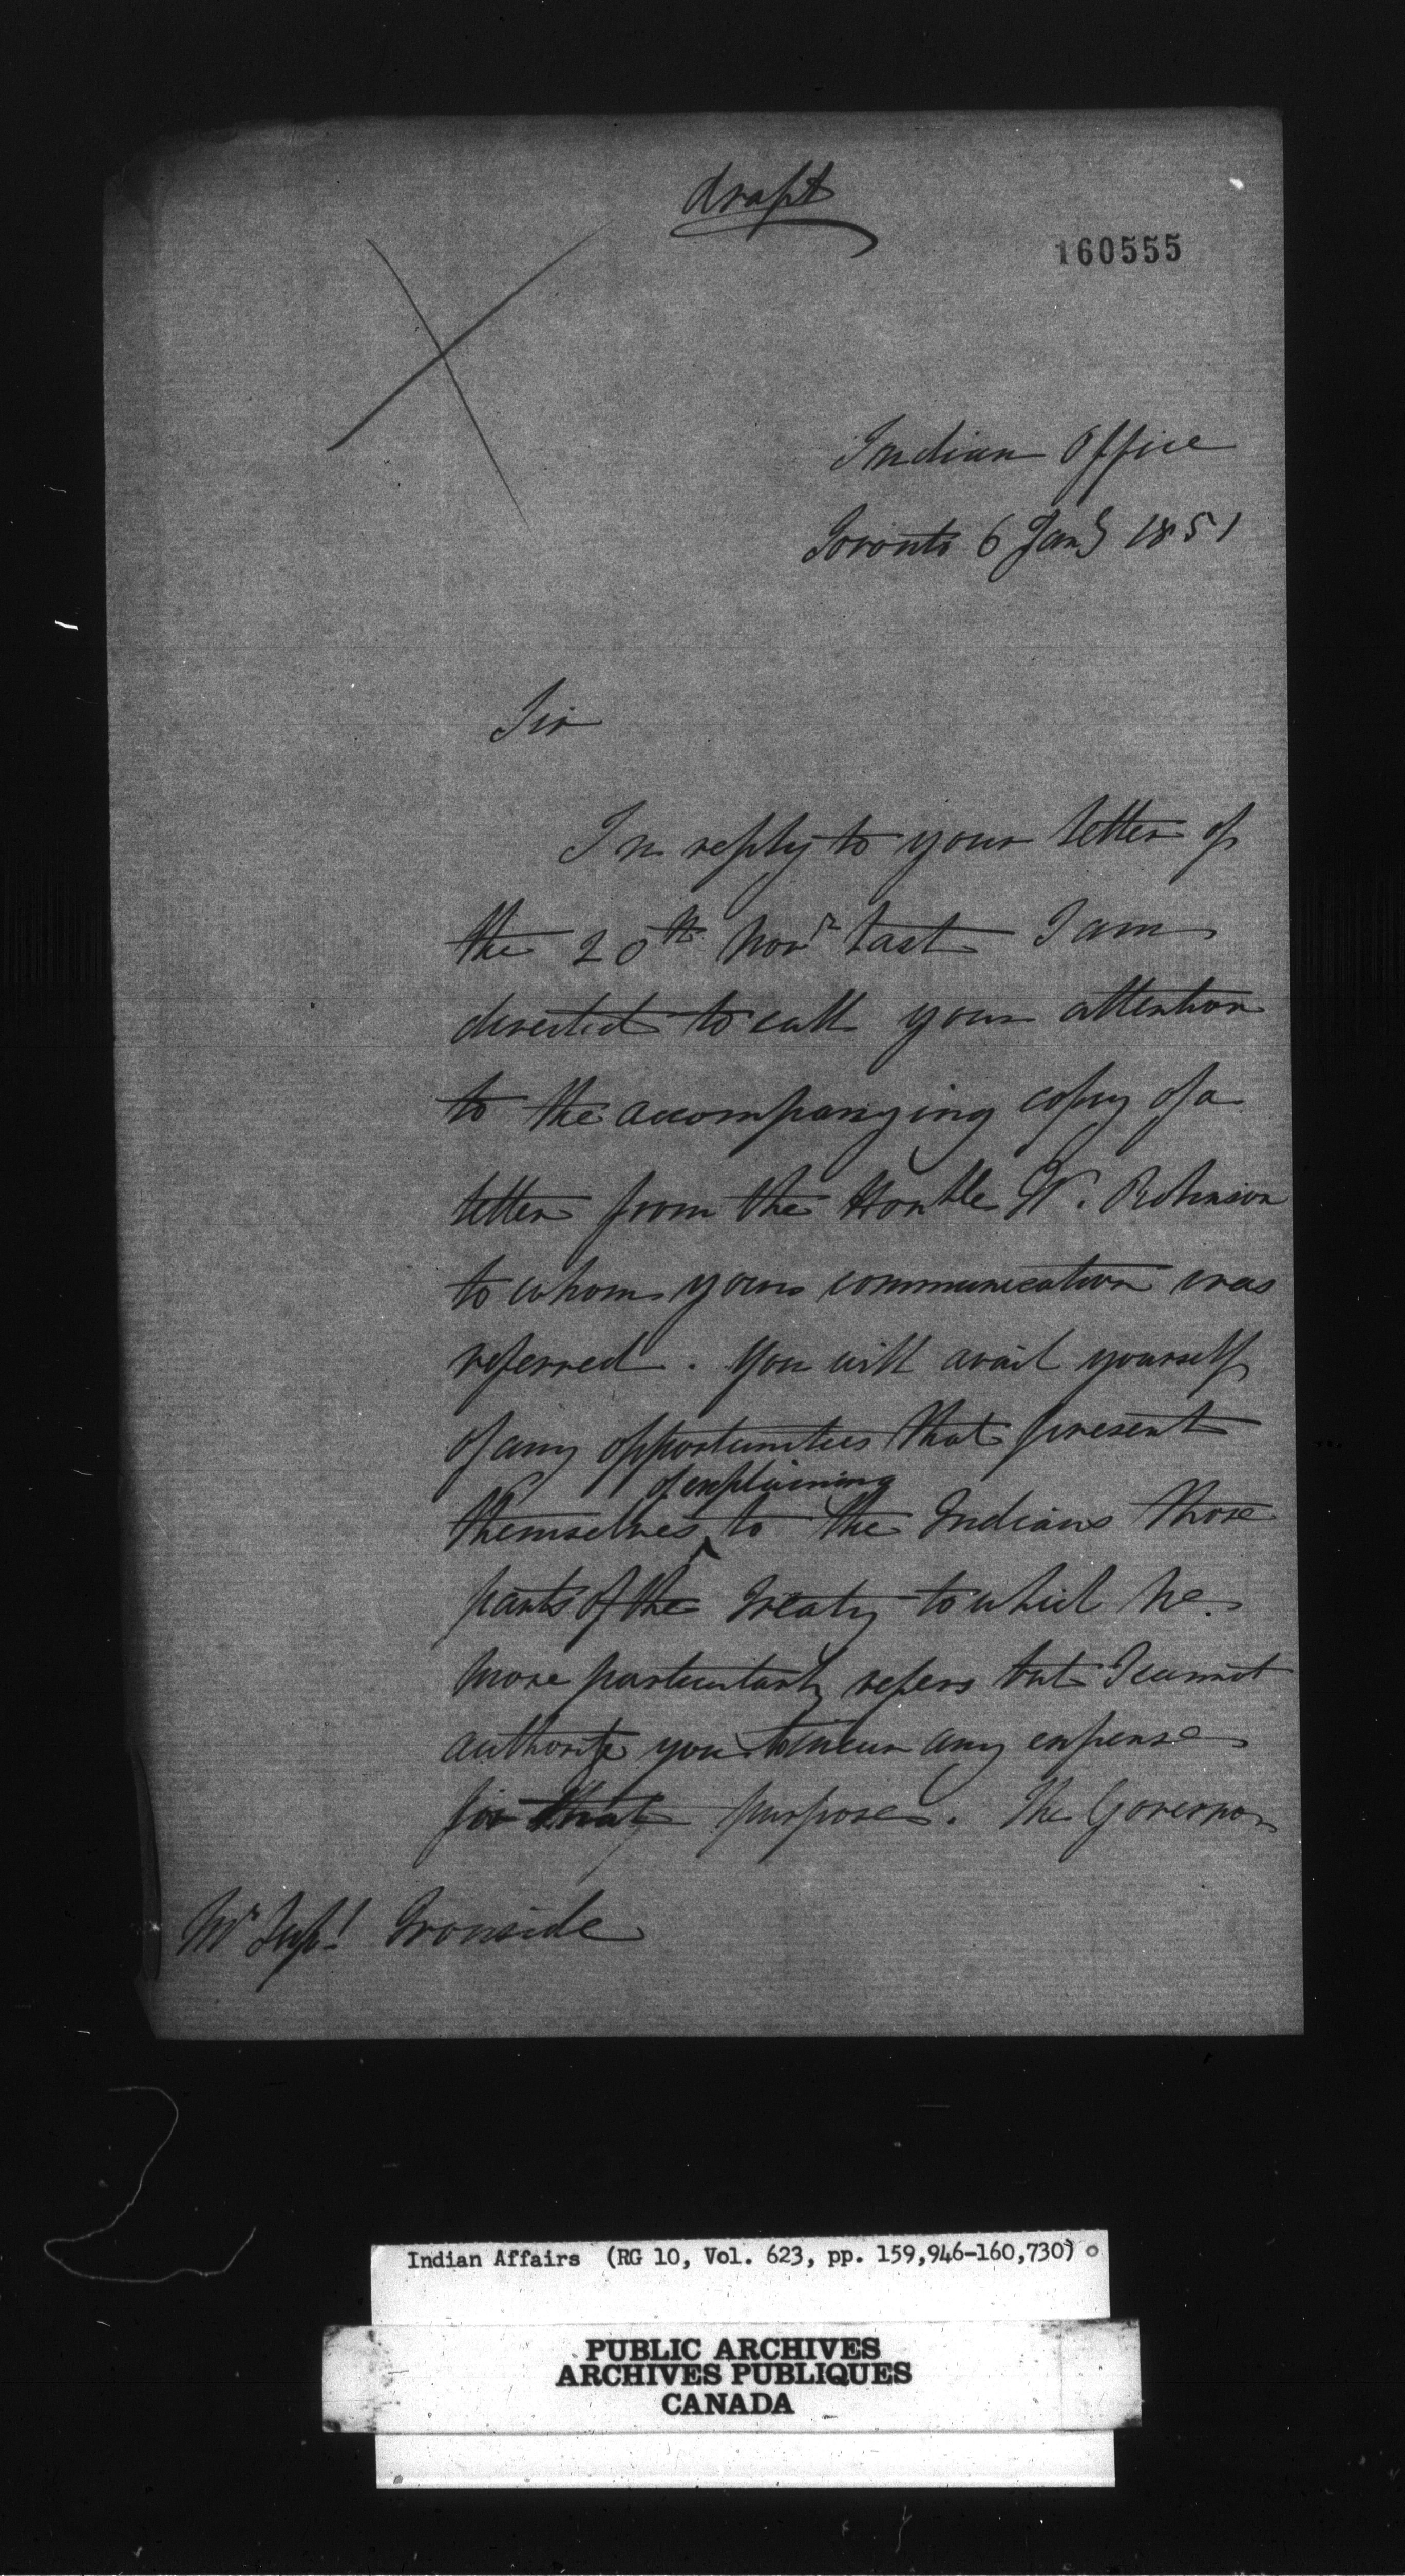 draft
160555
Indian Office
Toronto 6 Jany 1851
Sir
In reply to your letter of
the 20th Novr last I am
directed to call your attention
to the accompanying copy of a
letter from the Honble W. Robinson
to whom your communication was
referred. You will avail yourself
of any opportunities that present
of explaining
themselves ^ to the Indians those
parts of the Treaty to which he
more particularly refers but I cannot
authorize you to incur any expense
for that purpose. The Governor
Mr Supt. Ironside
Indian Affairs (RG 10, Vol. 623, pp. 159,946-160,730)
PUBLIC ARCHIVES
ARCHIVES PUBLIQUES
CANADA